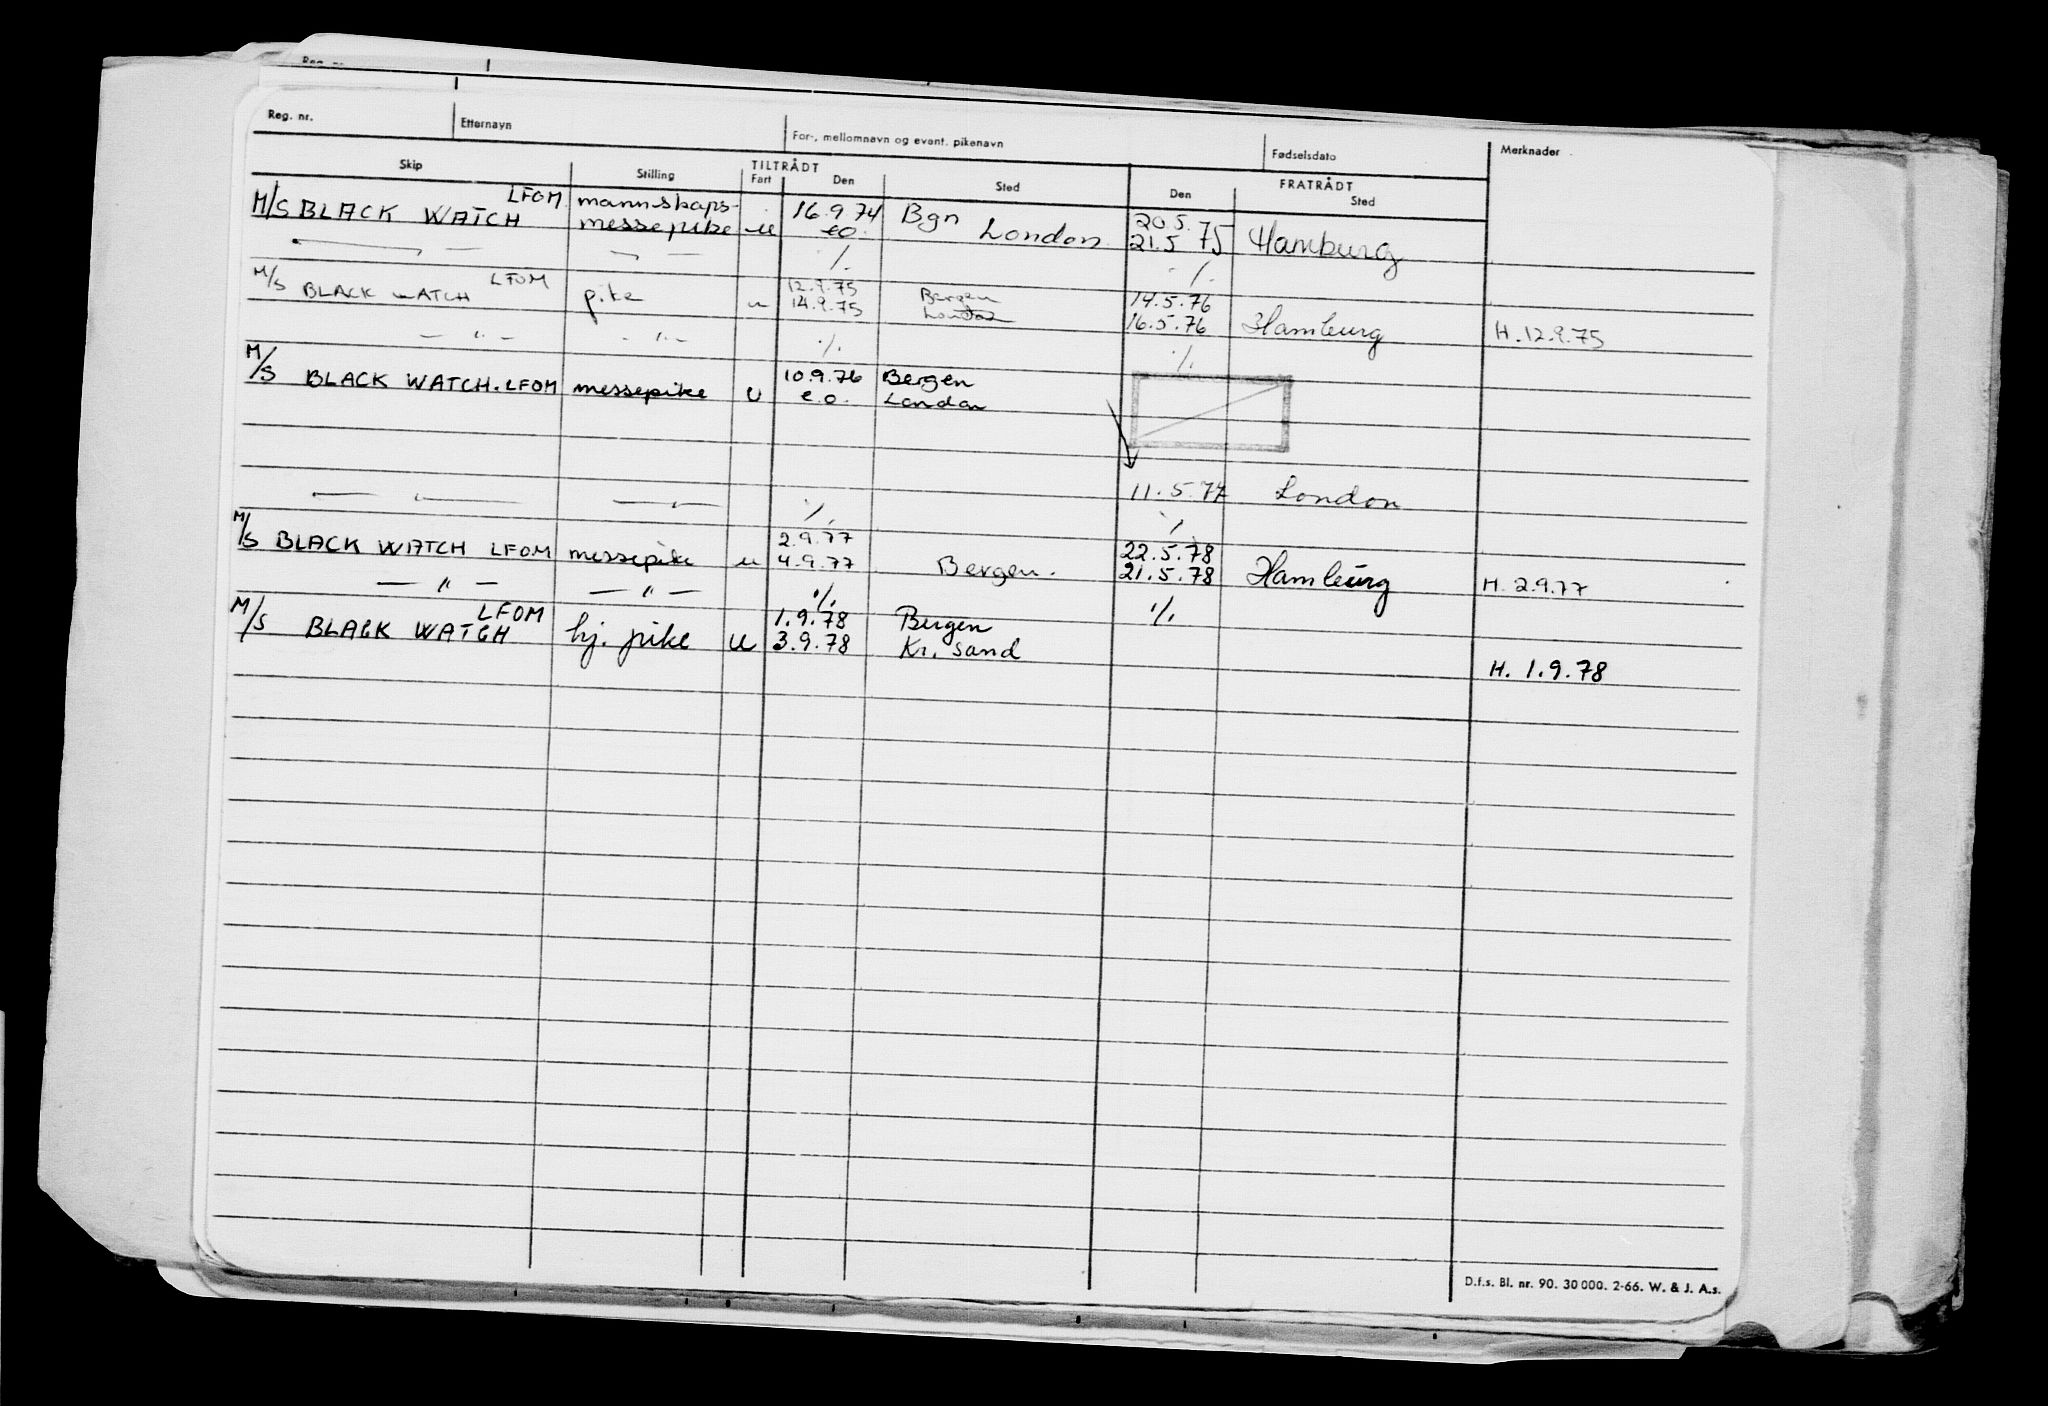 Reg. nr. Etternavn For-, mellomnavn og event. pikenavn Fødselsdato Merknader
TILTRÅDT FRATRÅDT
Skip Stilling Fart Den Sted Den Sted
LFOM mannskaps- 16.9.74 Bgn 20.5.
M/S BLACK WATCH messepike u eo. London 21.5 75 Hamburg
— " — — " — ./. ./.
M/S LFOM 12.9.75 Bergen 14.5.76
BLACK WATCH pike u 14.9.75 London 16.5.76 Hamburg H. 12.9.75
— " — — " — ./. ./.
M/S 10.9.76 Bergen
BLACK WATCH. LFOM messepike u e.o. London
— " — — " — ./. 11.5.77 London
./.
M/S 2.9.77 22.5.78
BLACK WATCH LFOM messepike u 4.9.77 Bergen. 21.5.78 Hamburg H. 2.9.77
— " — — " — ./. ./.
M/S LFOM 1.9.78 Bergen
BLACK WATCH hj. pike u 3.9.78 Kr. sand H. 1.9.78
D.f.s. Bl. nr. 90. 30 000. 2-66. W. & J. A.s.